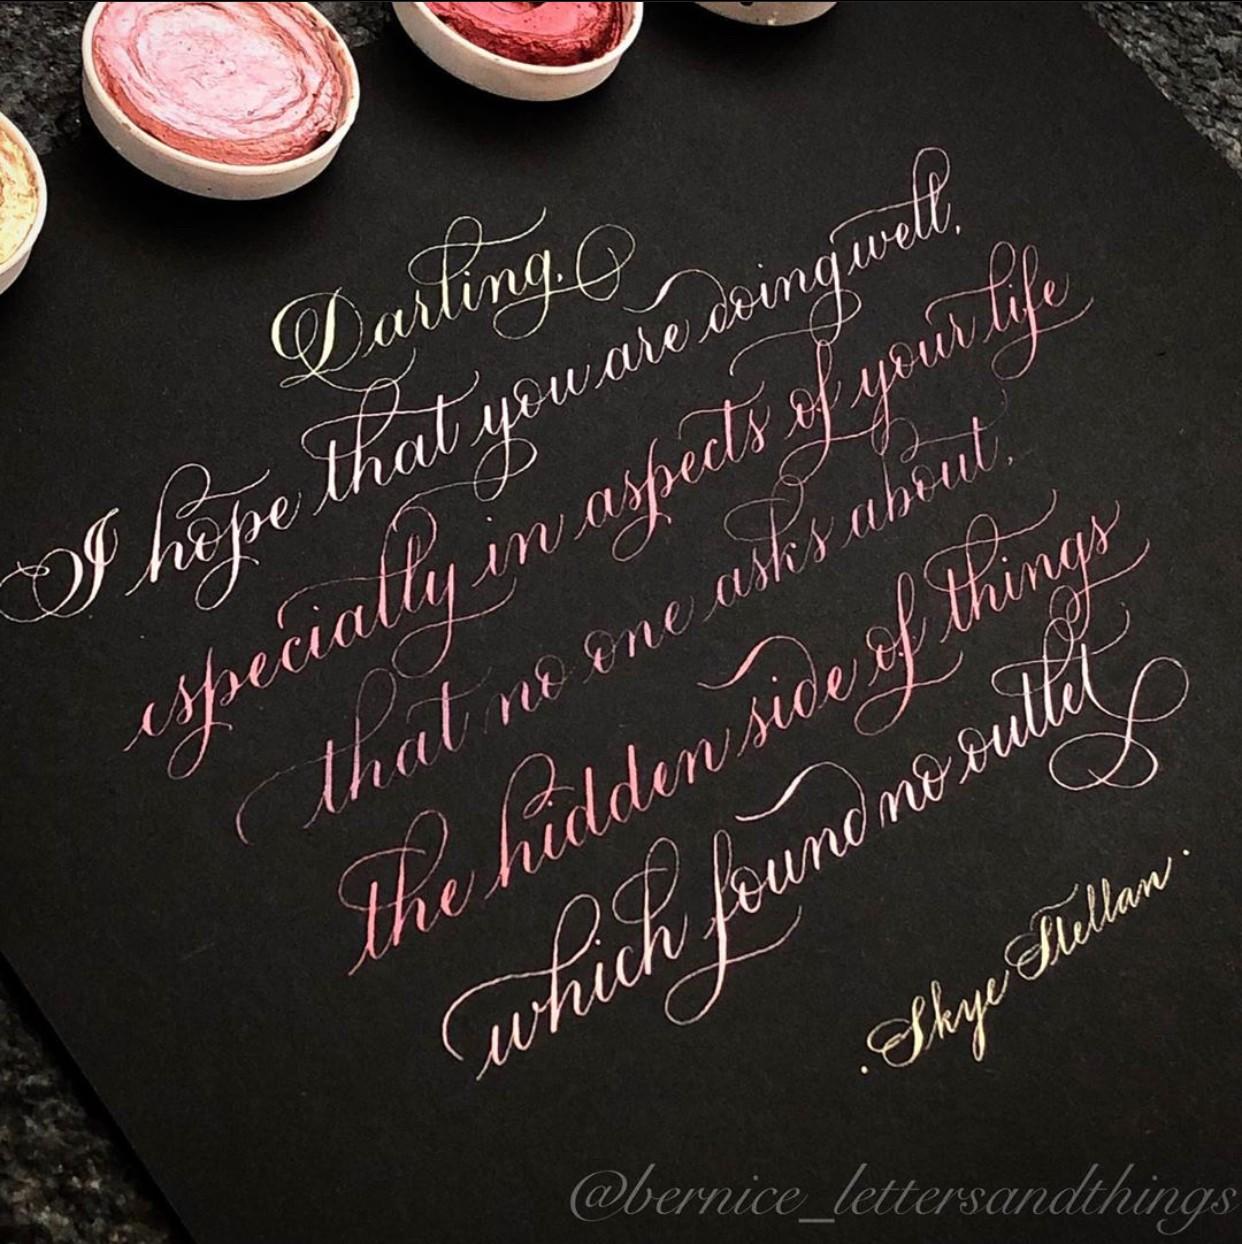 Darling,
I hope that you are doing well,
especially in aspects of your life
that no one asks about,
the hidden side of things
which found no outlet
. Skye Stellan .
@bernice_lettersandthings